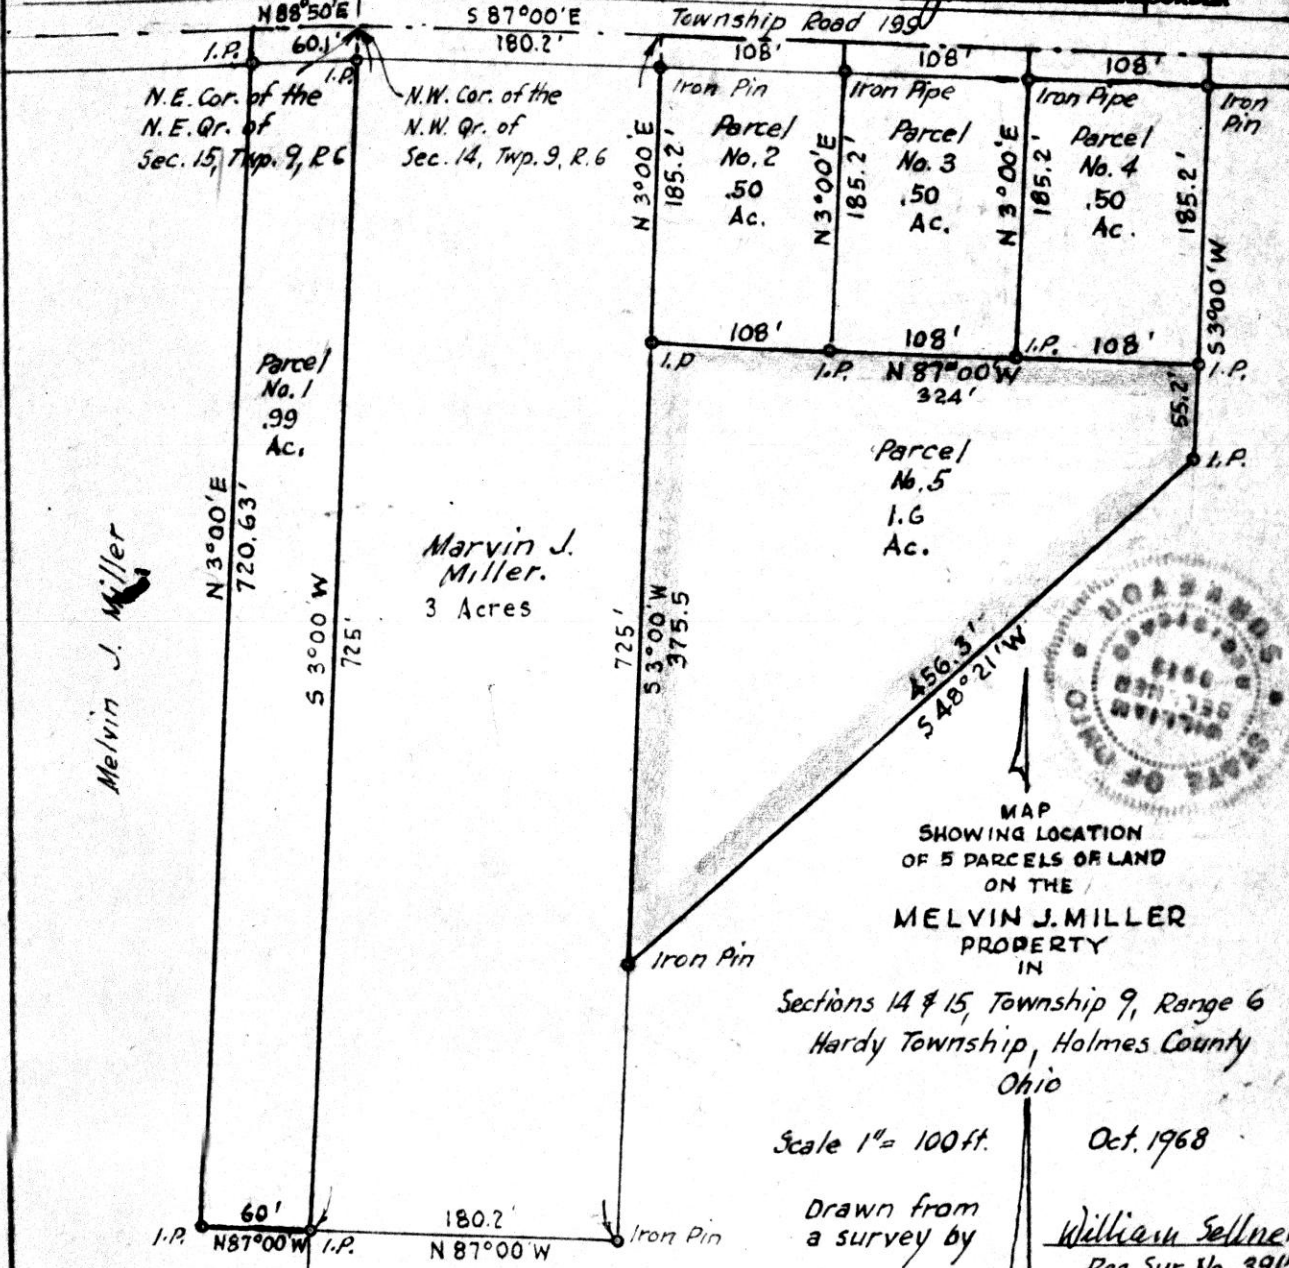 N 88°50'E
S 87°00'E
Township Road 199
60.1'
180.2'
108'
108'
108'
I.P.
I.P.
Iron Pin
Iron Pipe
Iron Pipe
Iron
Pin
N.E. Cor. of the
N.E. Qr. of
Sec. 15, Twp. 9, R 6
N.W. Cor. of the
N.W. Qr. of
Sec. 14, Twp. 9, R. 6
N 3°00'E
185.2'
Parcel
No. 2
.50
Ac.
N 3°00'E
185.2'
Parcel
No. 3
.50
Ac.
N 3°00'E
185.2'
Parcel
No. 4
.50
Ac.
185.2'
S 3°00'W
108'
108'
108'
I.P
I.P.
I.P.
I.P.
N 87°00'W
324'
55.2'
I.P.
Parcel
No. 1
.99
Ac.
Parcel
No. 5
1.6
Ac.
Melvin J. Miller
N 3°00'E
720.63'
S 3°00'W
725'
Marvin J.
Miller.
3 Acres
725'
S 3°00'W
375.5
456.3'
S 48°21'W
STATE OF OHIO
WILLIAM
REGISTERED
SURVEYOR
MAP
SHOWING LOCATION
OF 5 PARCELS OF LAND
ON THE
MELVIN J. MILLER
PROPERTY
IN
Sections 14 & 15, Township 9, Range 6
Hardy Township, Holmes County
Ohio
Iron Pin
Scale 1"= 100 ft.
Oct. 1968
Drawn from
a survey by
William Sellne
60'
180.2'
I.P.
N 87°00'W
I.P.
N 87°00'W
Iron Pin